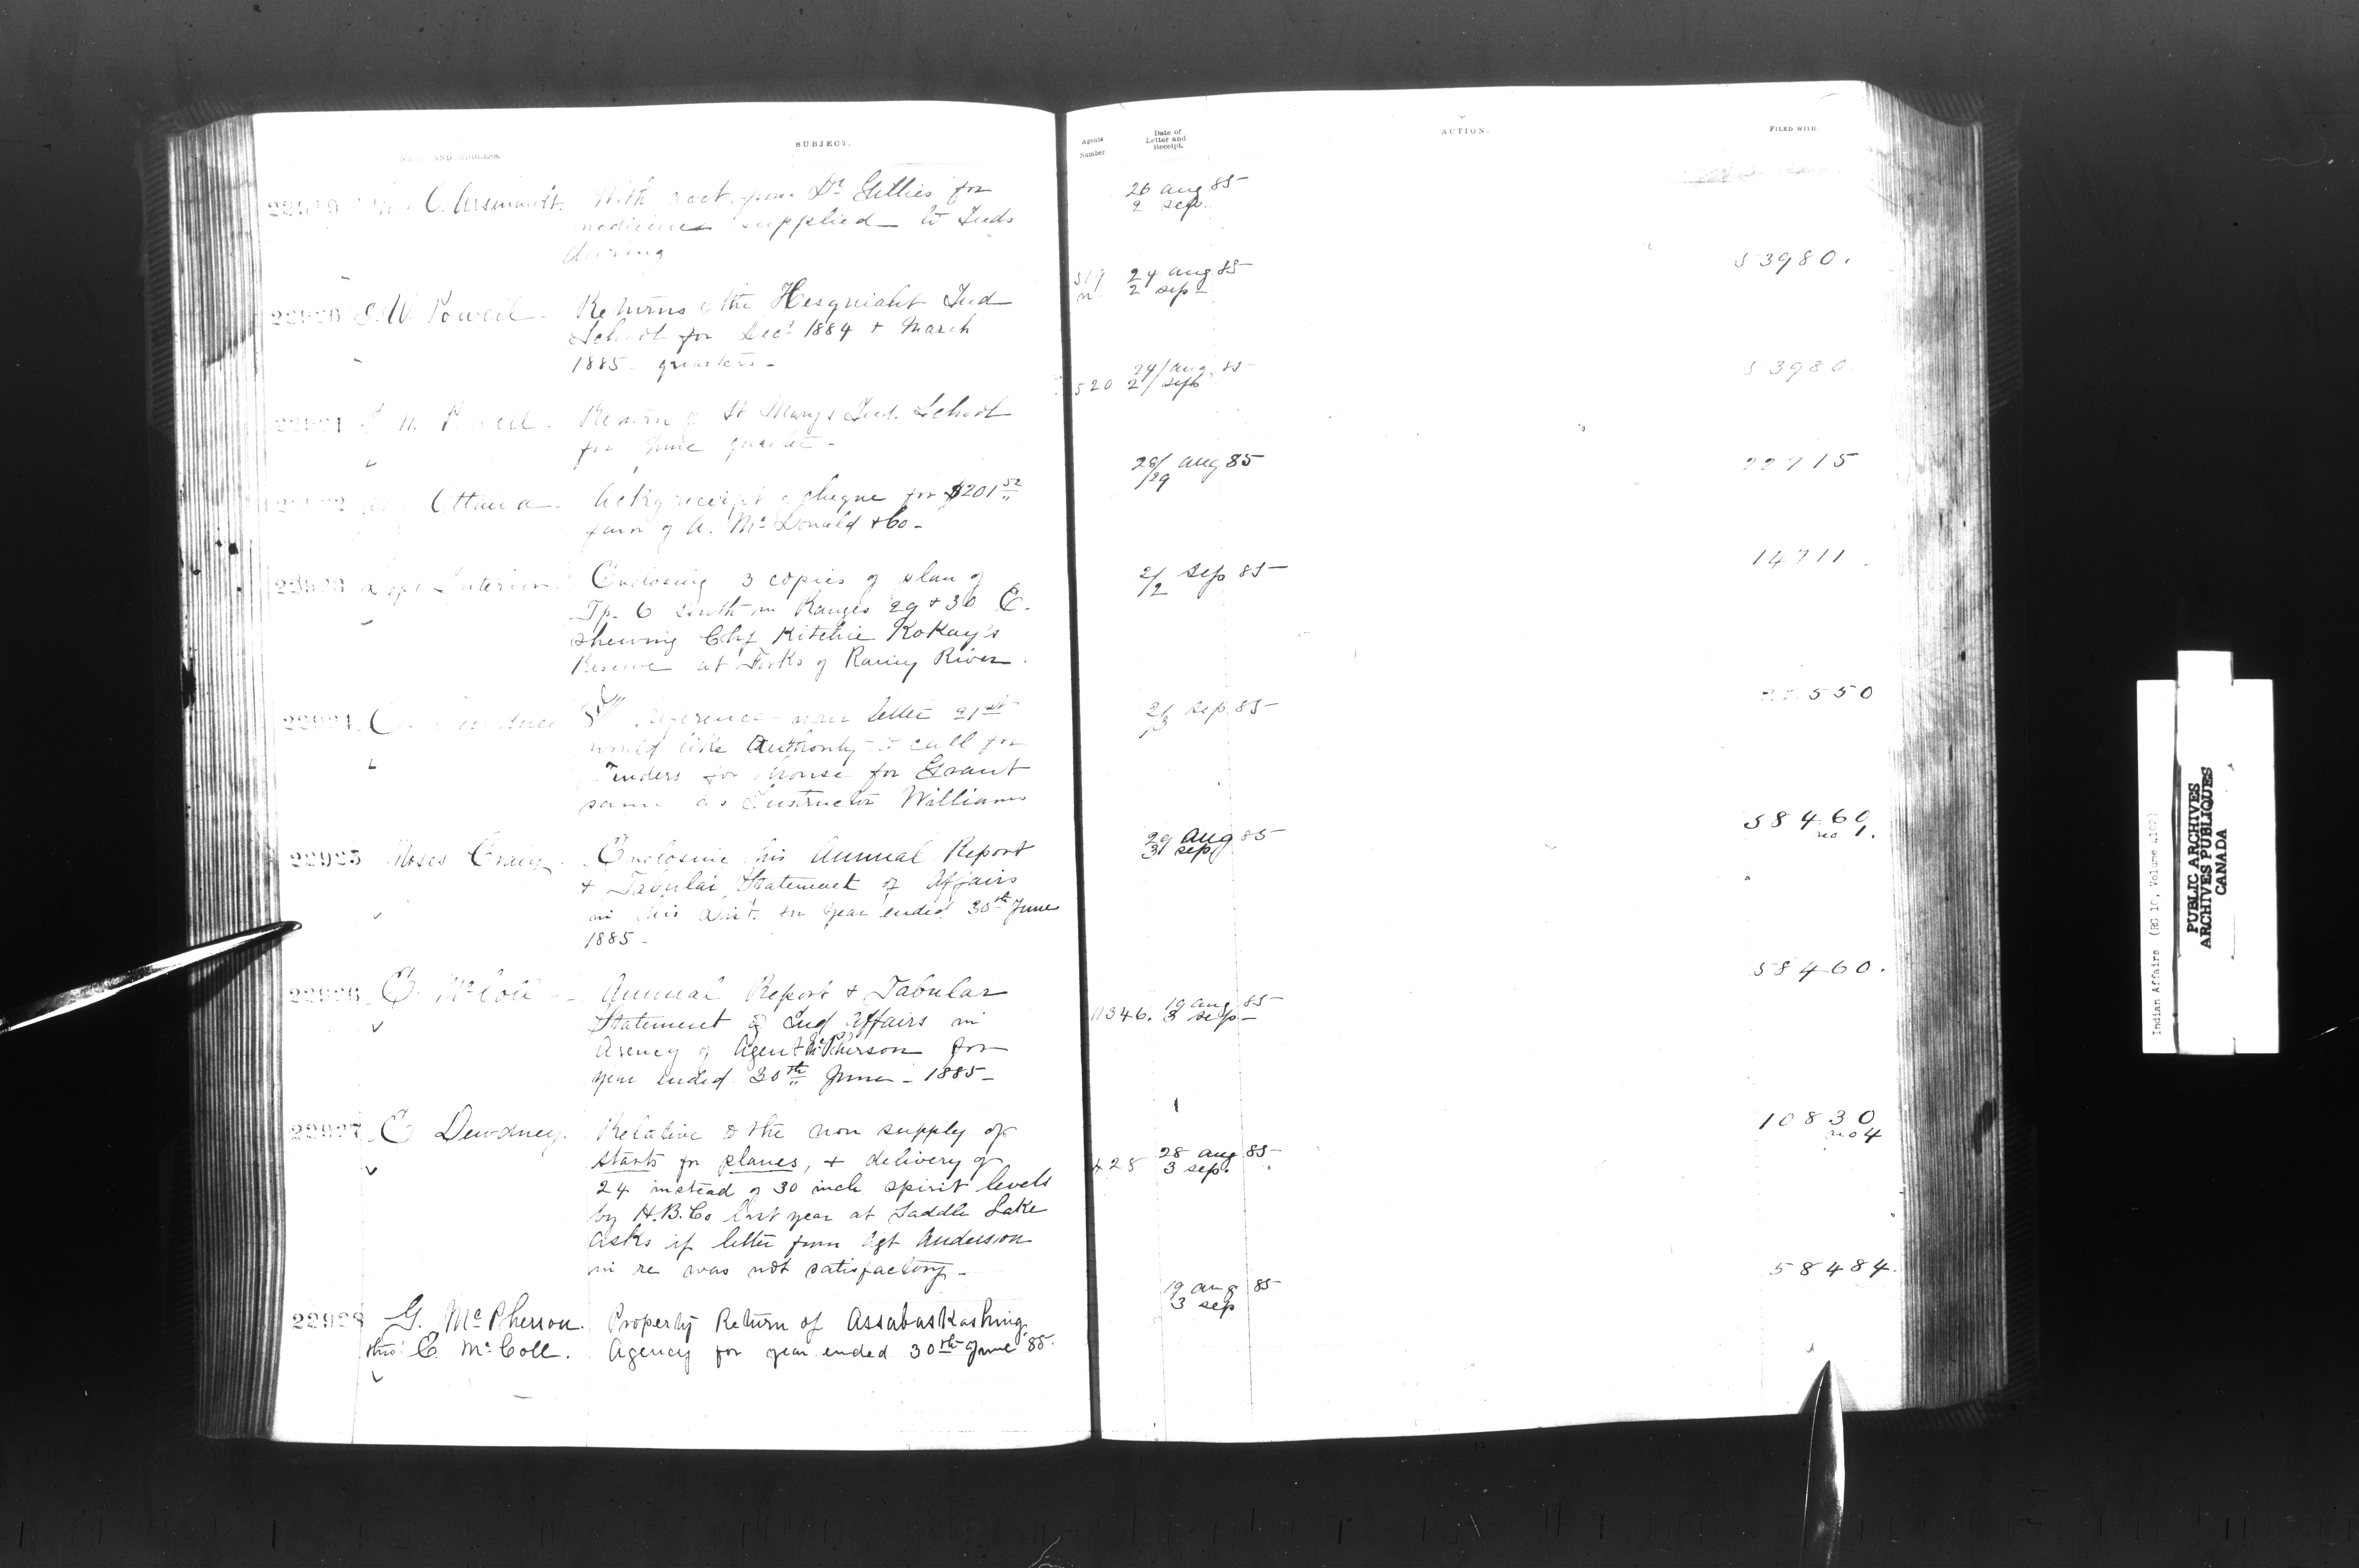 NAME AND ADDRESS.
SUBJECT.
Agents Number.
Date of Letter and Receipt.
ACTION.
FILED WITH.
22919 C.
With acct from Dr Gillies for
medicines supplied to Inds
during
26 aug 85
2 sep.
22920 I.W. Powell.
Returns of the Hesquiaht Ind
School for Decr 1884 + March
1885 quarters -
519
24 aug 85
2 sep
53980.
22921 I. W. Powell.
Return of St Marys Ind. School
for June quarter -
520
24/ aug. 85
2/ sept
53980
22922 Ottawa
Ackg receipt of cheque for $201 52
favor of A. Mc Donald & Co -
28/ aug 85
/29
22715
22923 Dept Interior
Enclosing 3 copies of plan of
Tp. 6 south in Ranges 29 + 30 E.
shewing Chf Kitchie Kokay's
Reserve at Forks of Rainy River.
2/ sep 85
/2
14711.
22924 E. Dewdney
reference letter 21st
would like authority to call for
Tenders for house for Grant
same as Instructor Williams
2/ sep 85
/3
550
22925 Moses Craig.
Enclosing his Annual Report
+ Tabular Statement of Affairs
in his Dist. for year ended 30th June
1885 -
29 aug 85
31 sep
58460
no 1.
22926 E. McColl -
Annual Report + Tabular
Statement of Ind Affairs in
Agency of Agent McPherson for
year ended 30th June - 1885 -
11346.
19 aug 85
3 sep
58460.
22927 E Dewdney.
Relative to the non supply of
starts for planes, + delivery of
24 instead of 30 inch spirit levels
by H.B.Co last year at Saddle Lake
asks if letter from Agt Anderson
in re was not satisfactory -
425
28 aug 85
3 sep.
10830
no 4
22928 G. McPherson.
thro' E. McColl.
Property Return of Assabaskashing
Agency for year ended 30th June 85.
19 aug 85
3 sep
58484.
Indian Affairs (RG 10, Volume 4102)
PUBLIC ARCHIVES
ARCHIVES PUBLIQUES
CANADA